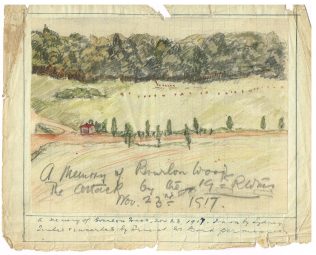 A Memory of Bourlon Wood
the Attack by the 19th R.W.Fus
Nov. 23rd 1917.
A memory of Bourlon Wood, Nov 23 1917. Drawn by Sydney
by Ernest